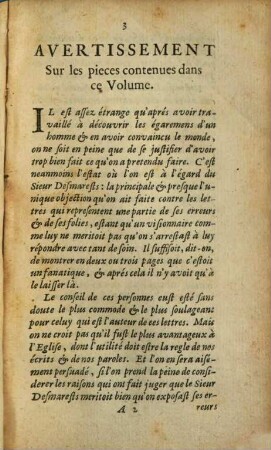 3
AVERTISSEMENT
Sur les pieces contenues dans
ce Volume.
IL est assez étrange qu'aprés avoir tra-
vaillé à découvrir les égaremens d'un
homme & en avoir convaincu le monde,
on ne soit en peine que de se justifier d'avoir
trop bien fait ce qu'on a pretendu faire. C'est
neanmoins l'estat où l'on est à l'égard du
Sieur Desmarests: la principale & presque l'u-
nique objection qu'on ait faite contre les let-
tres qui representent une partie de ses erreurs
& de ses folies, estant qu'un visionnaire com-
me luy ne meritoit pas qu'on s'arrestast à luy
répondre avec tant de soin. Il suffisoit, dit-on,
de montrer en deux ou trois pages que c'estoit
un fanatique, & aprés cela il n'y avoit qu'à
le laisser là.
Le conseil de ces personnes eust esté sans
doute le plus commode & le plus soulageant
pour celuy qui est l'auteur de ces lettres. Mais
on ne croit pas qu'il fust le plus avantageux à
l'Eglise, dont l'utilité doit estre la regle de nos
écrits & de nos paroles. Et l'on en sera aise-
ment persuadé, si l'on prend la peine de consi-
derer les raisons qui ont fait juger que le Sieur
Desmarests meritoit bien qu'on exposast ses er-
A 2 reurs